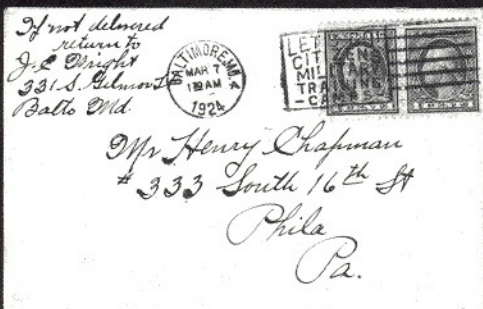 If not delivered
return to
J.C. Wright
331 S. Gilmor St
Balto Md.
BALTIMORE, MD.
MAR 7
AM
1924
LET
CITIZENS
MIL
TRAIN
CAMPS
Mr Henry Chapman
# 333 South 16th St
Phila
Pa.